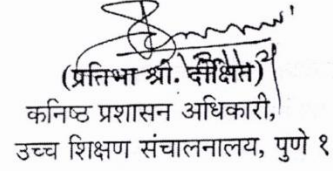 (प्रतिभा श्री. दीक्षित)
कनिष्ठ प्रशासन अधिकारी,
उच्च शिक्षण संचालनालय, पुणे १